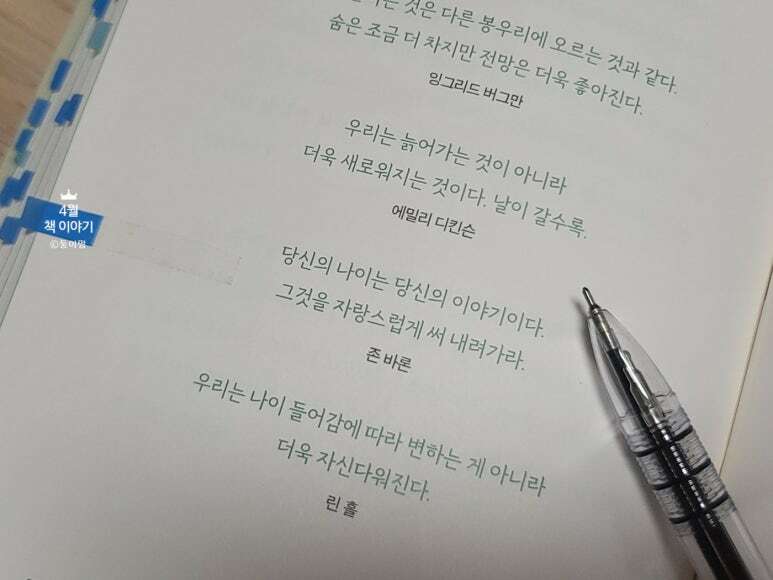 것은 다른 봉우리에 오르는 것과 같다.
숨은 조금 더 차지만 전망은 더욱 좋아진다.
잉그리드 버그만
우리는 늙어가는 것이 아니라
더욱 새로워지는 것이다. 날이 갈수록.
에밀리 디킨슨
4월
책 이야기
©둥이맘
당신의 나이는 당신의 이야기이다.
그것을 자랑스럽게 써 내려가라.
존 바론
우리는 나이 들어감에 따라 변하는 게 아니라
더욱 자신다워진다.
린 홀